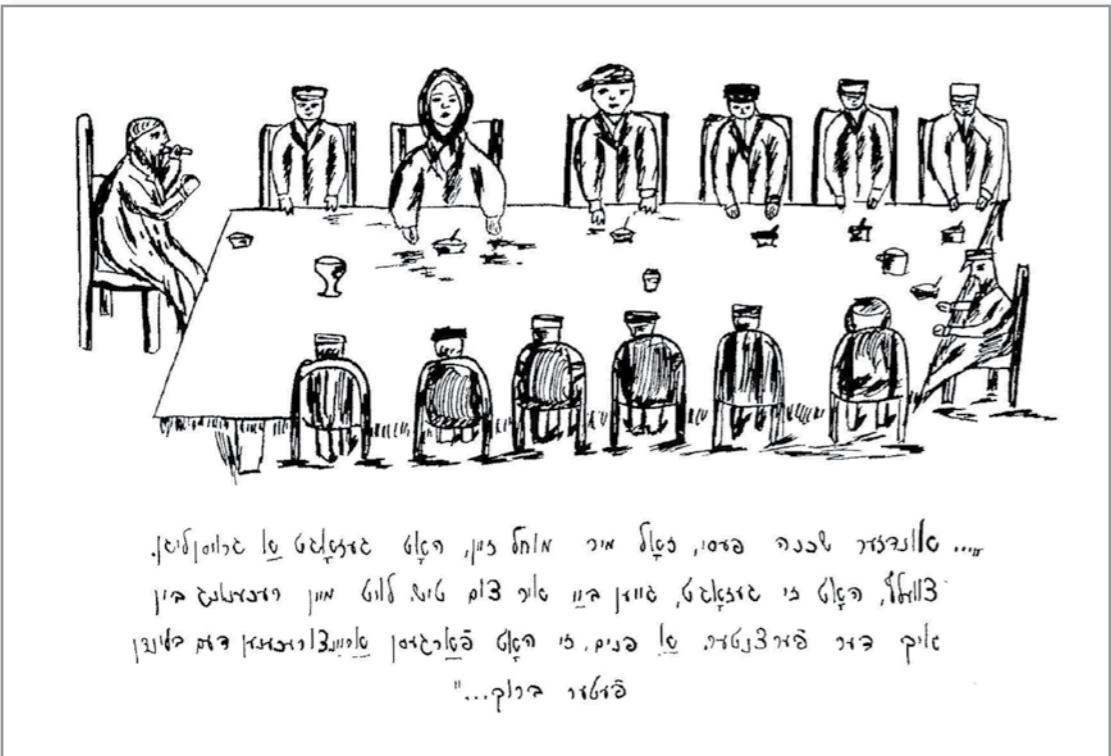 „... אונדזער שכנה פּעסי, זאָל מיר מוחל זיין, האָט געזאָגט אַ גרויסן ליגן.
צוועלף, האָט זי געזאָגט, גייען בײַ איר צום טיש. לויט מיין רעכענונג בין
איך דער פֿערצנטער. אַ פּנים, זי האָט פֿאַרגעסן אַרײַנצורעכענען דעם בלינדן
פֿעטער ברוך..."